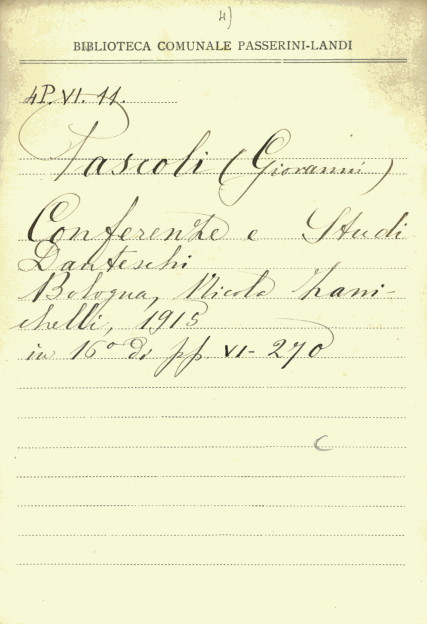 4)
BIBLIOTECA COMUNALE PASSERINI-LANDI
4P. VI. 11.
Pascoli (Giovanni)
Conferenze e Studi
Danteschi
Bologna, Nicola Zani-
chelli, 1915
in 16° di pp VI-270
C